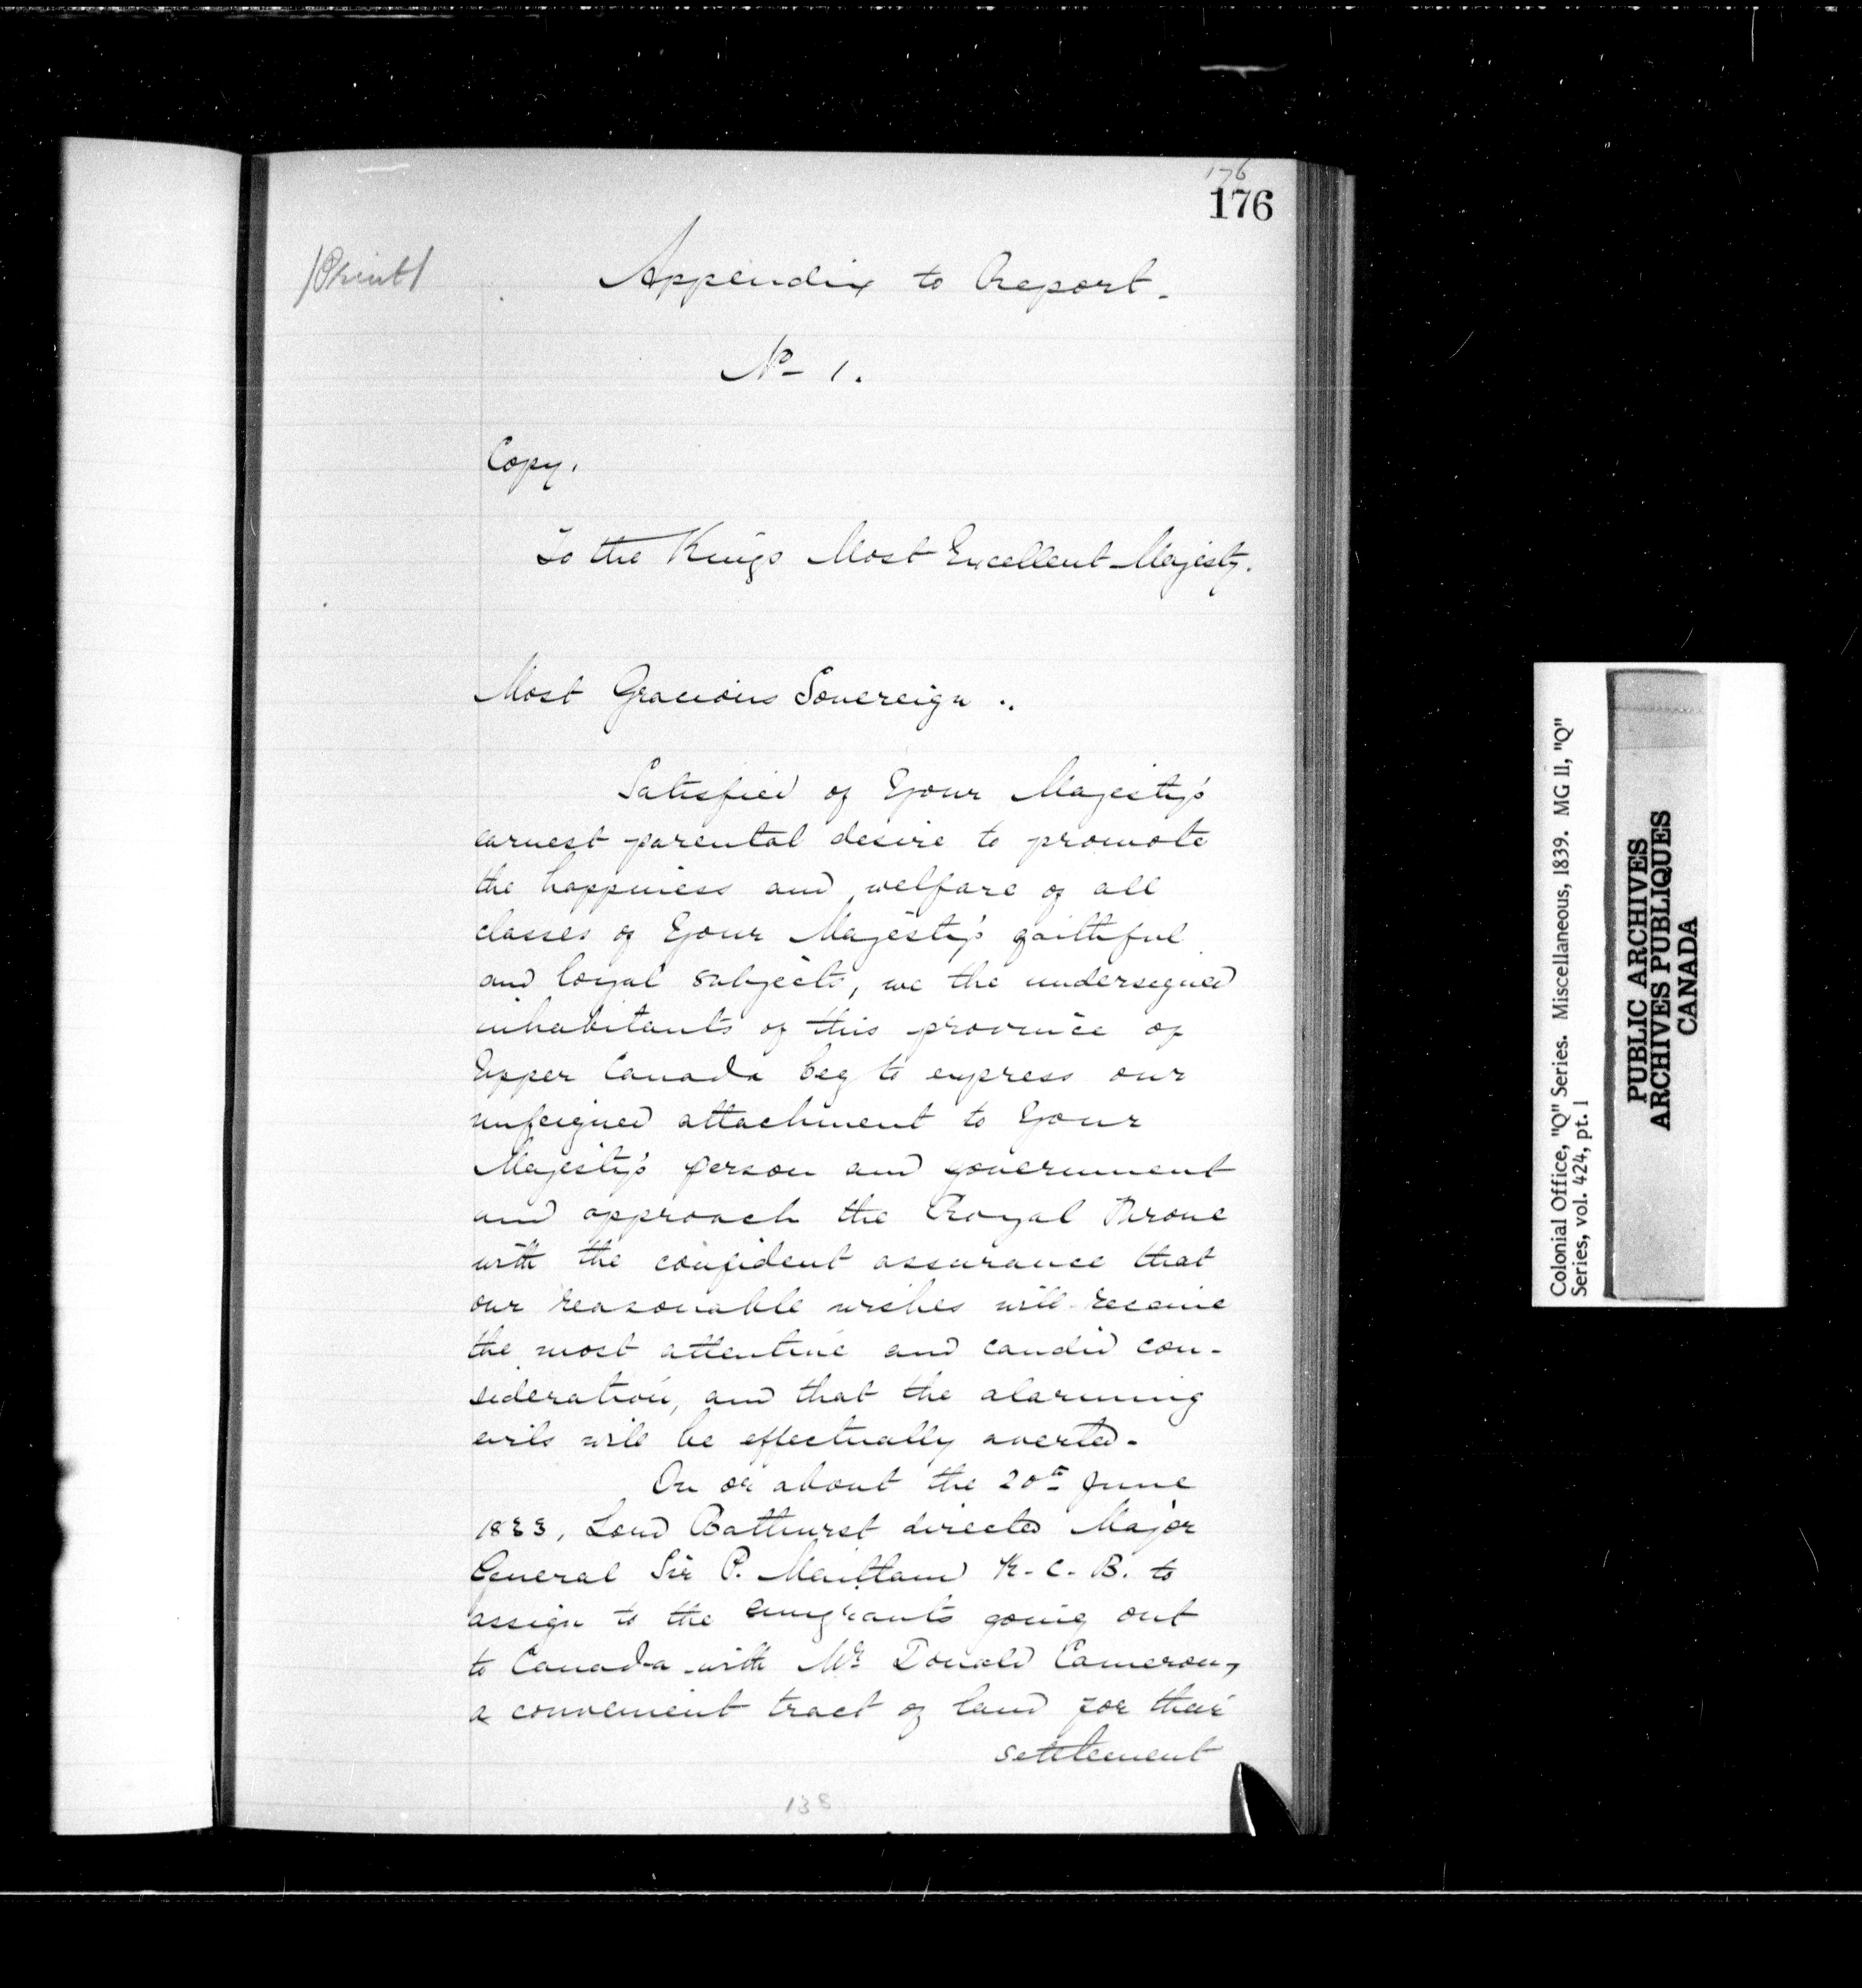 176
176
/Print/
Appendix to Report.
No 1.
Copy.
To the Kings Most Excellent Majesty.
Most Gracious Sovereign ..
Satisfied of Your Majesty's
earnest parental desire to promote
the happiness and welfare of all
classes of Your Majesty's faithful
and loyal subjects, we the undersigned
inhabitants of this province of
Upper Canada beg to express our
unfeigned attachment to Your
Majesty's person and government
and approach the Royal Throne
with the confident assurance that
our reasonable wishes will receive
the most attentive and candid con-
sideration, and that the alarming
evils will be effectually averted.
On or about the 20th June
1823, Lord Bathurst directed Major
General Sir P. Maitland K.C.B. to
assign to the emigrants going out
to Canada with Mr Donald Cameron,
a convenient tract of land for their
settlement
138
Colonial Office, "Q" Series. Miscellaneous, 1839. MG 11, "Q"
Series, vol. 424, pt. 1
PUBLIC ARCHIVES
ARCHIVES PUBLIQUES
CANADA